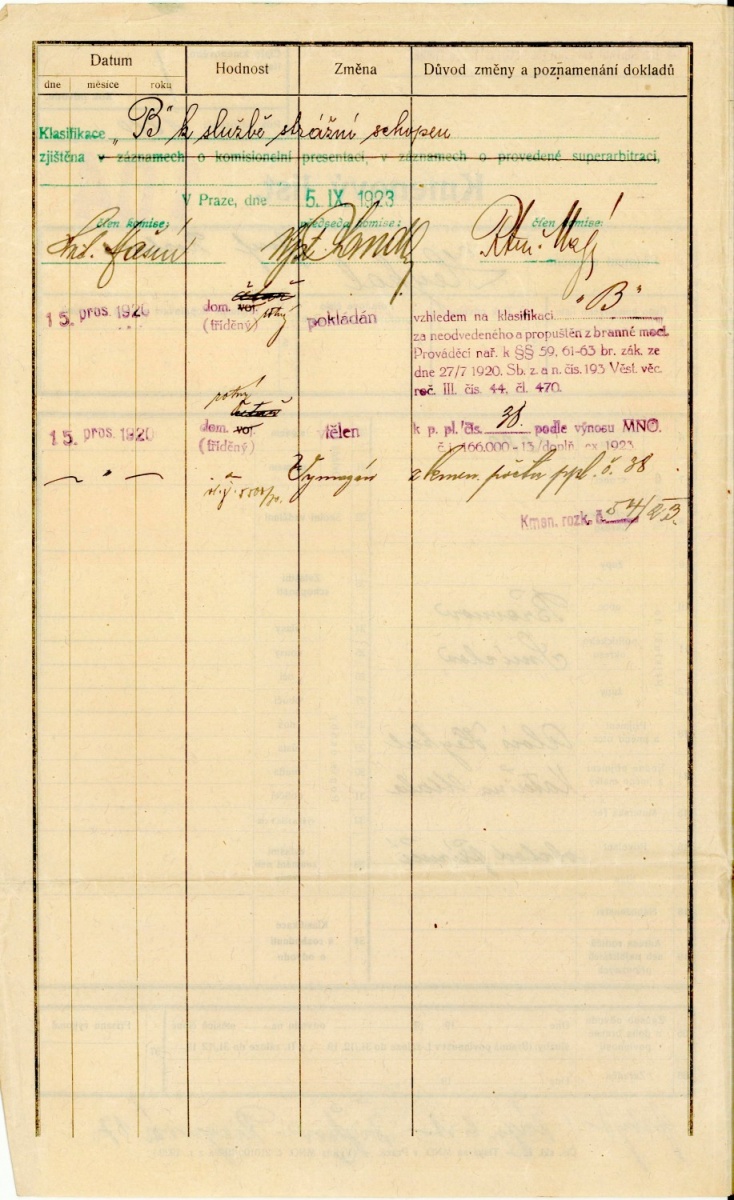 Datum
Hodnost
Změna
Důvod změny a poznamenání dokladů
dne měsíce roku
Klasifikace „B" k službě strážní schopen
zjištěna v záznamech o komisionelní presentaci, v záznamech o provedené superarbitraci,
V Praze, dne 5. IX 1923
člen komise: předseda komise: člen komise:
15. pros. 1920
četař
dom. voj. rotný
(tříděný)
pokládán
vzhledem na klasifikaci „B"
za neodvedeného a propuštěn z branné moci.
Prováděcí nař. k §§ 59, 61-63 br. zák. ze
dne 27/7 1920. Sb. z. a n. čís. 193 Věst. věc.
roč. III. čís. 44, čl. 470.
rotný
četař
15. pros. 1920
dom. voj.
(tříděný)
vtělen
k p. pl. čís. 38. podle výnosu MNO.
č.j. 166.000-13/doplň. ex 1923
— " — Vymazán z kmen. počtu ppl. č. 38
Kmen. rozk. č. 54/23.